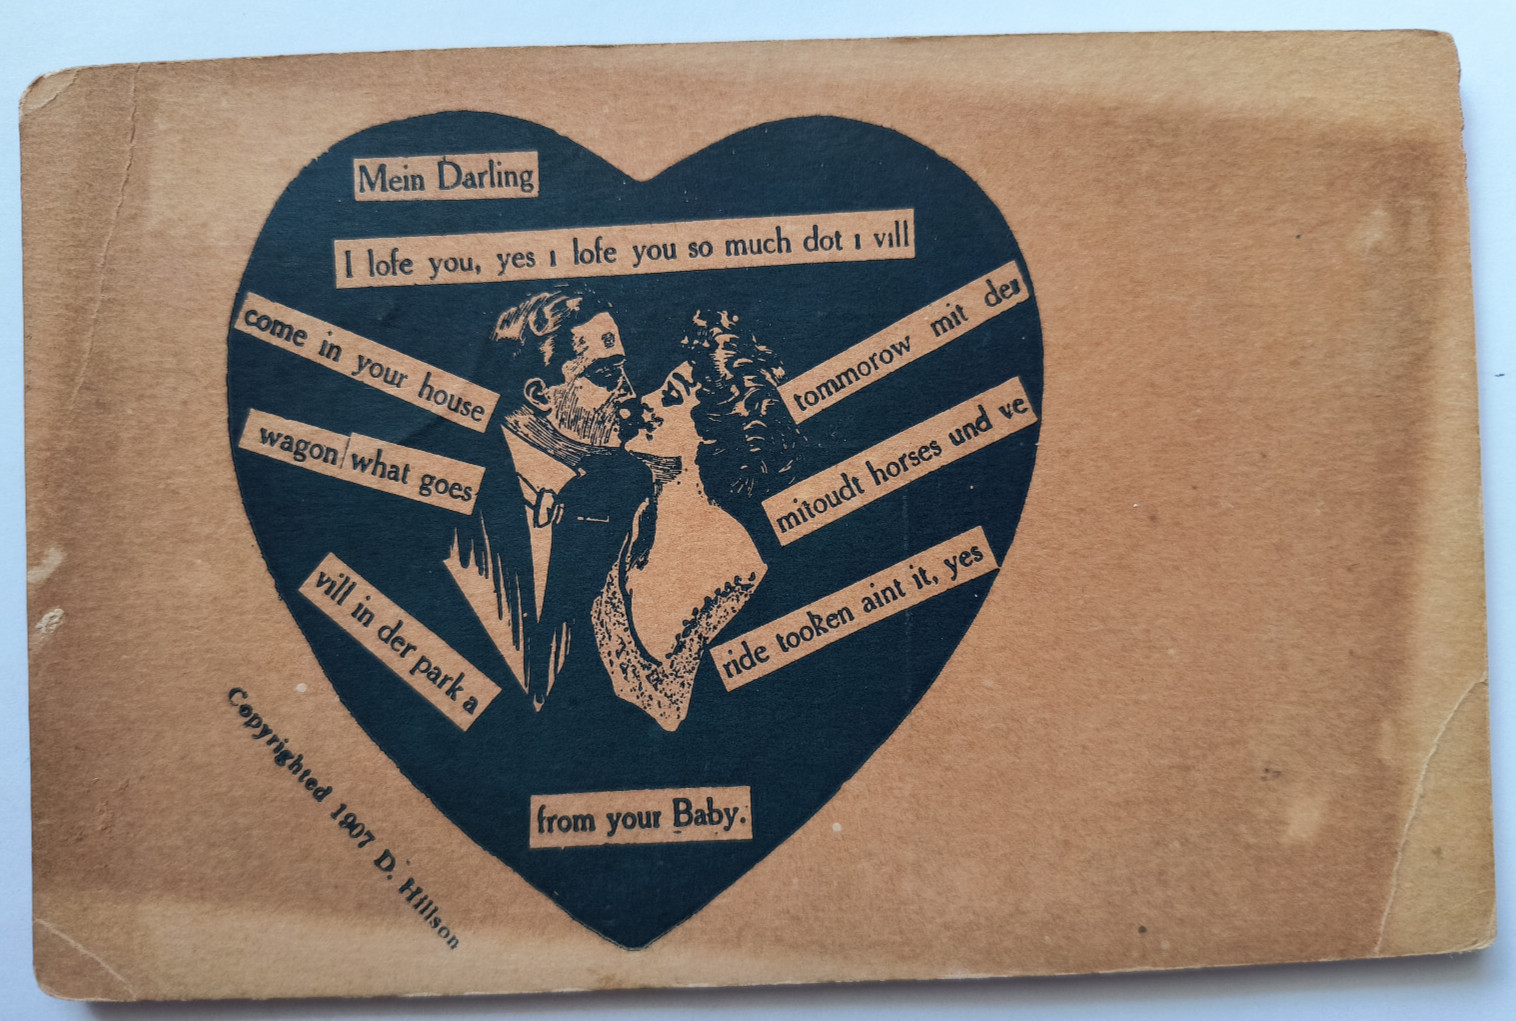 Mein Darling
I lofe you, yes i lofe you so much dot i vill
come in your house
tommorow mit der
wagon what goes
mitoudt horses und ve
vill in der park a
ride tooken aint it, yes
from your Baby.
Copyrighted 1907 D. Hillson